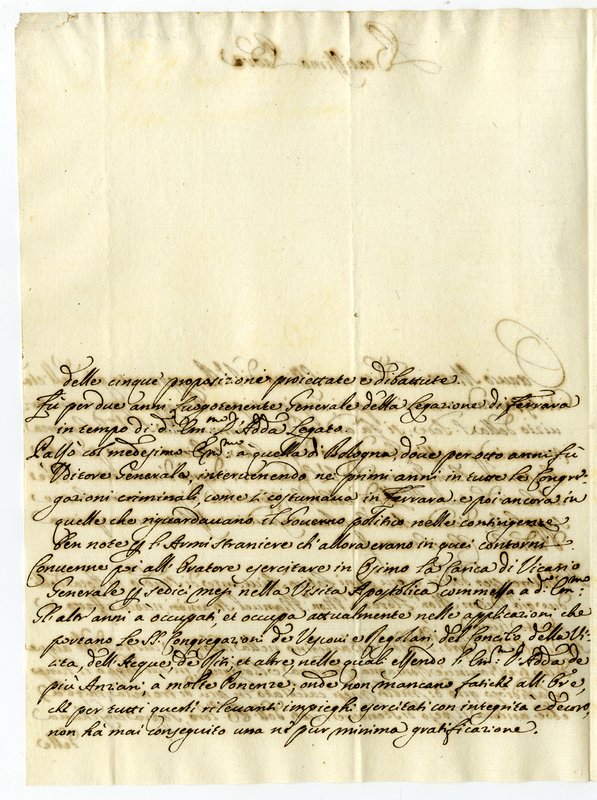 delle cinque proposizioni proiettate e dibattute.
Fù per due anni Luogotenente Generale della Legazione di Ferrara
in tempo di d. Em:mo d'Adda Legato.
Passò col medesimo Em:mo a quella di Bologna, doue per otto anni fù
Vditore Generale, interuenendo ne primi anni in tutte le Congre-
gazioni criminali, come si costumaua in Ferrara e poi ancora in
quelle che riguardauano il Gouerno politico nelle contingenze
ben note p l'Armi straniere ch'allora erano in quei contorni
Conuenne poi all'Oratore esercitare in Osimo la Carica di Vicario
Generale p sedici mesi nella Visita Apostolica commessa à d.º Em:mo
Gli altr'anni à occupati, et occupa attualmente nelle applicazioni che
portano le SS. Congregazioni de Vescoui e Regolari, del Concilio, della Vi-
sita, dell'Acque, de Riti, et altre, nelle quali essendo l'Em:mo d'Adda de
più Anziani à molte Ponenze, onde non mancano fatiche all'Ore,
chè per tutti questi rileuanti impieghi esercitati con integrita e decoro,
non hà mai conseguito una nè pur minima gratificazione.